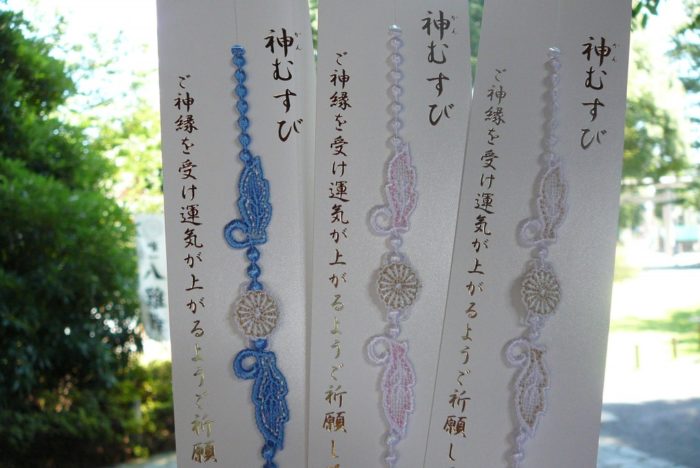 神むすび
かん
ご神縁を受け運気が上がるようご祈願
神むすび
かん
ご神縁を受け運気が上がるようご祈願し
神むすび
かん
ご神縁を受け運気が上がるようご祈願し